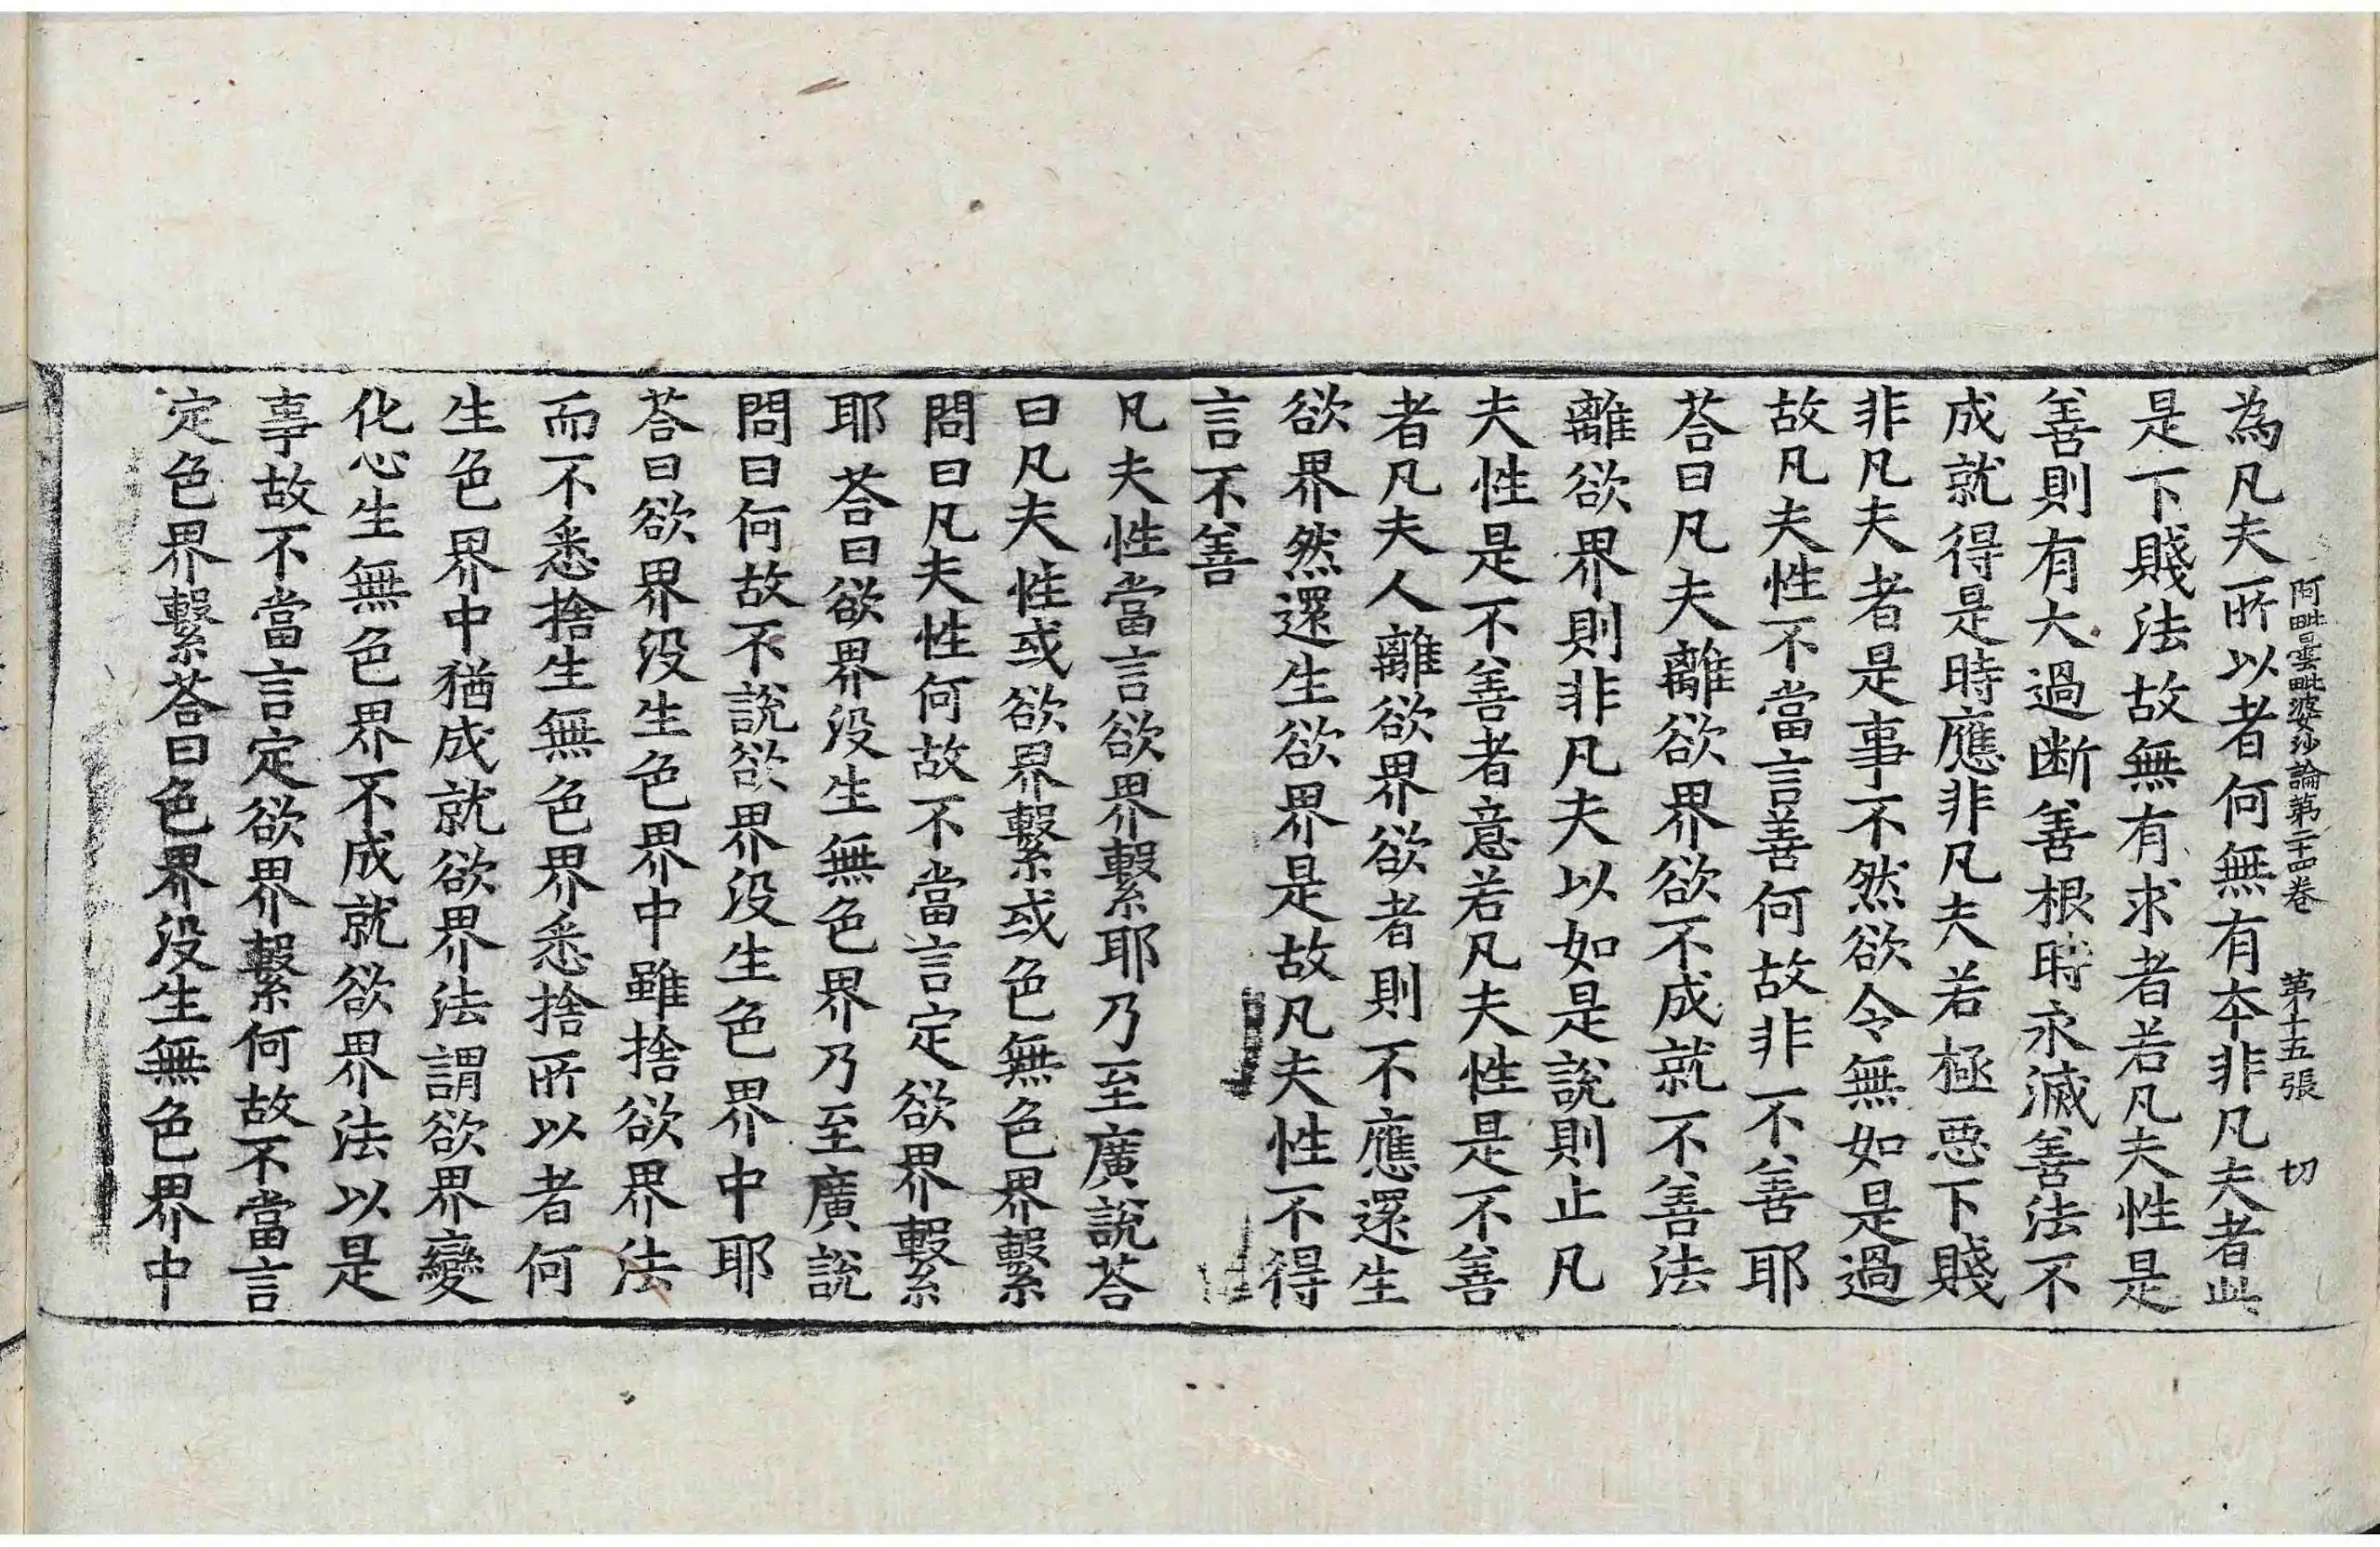 阿毗曇毗婆沙論第二十四卷　第十五張　切
為凡夫所以者何無有本非凡夫者此
是下賤法故無有求者若凡夫性是
善則有大過断善根時永滅善法不
成就得是時應非凡夫若極惡下賤
非凡夫者是事不然欲令無如是過
故凡夫性不當言善何故非不善耶
荅曰凡夫離欲界欲不成就不善法
離欲界則非凡夫以如是說則止凡
夫性是不善者意若凡夫性是不善
者凡夫人離欲界欲者則不應還生
欲界然還生欲界是故凡夫性不得
言不善
凡夫性當言欲界繫耶乃至廣說荅
曰凡夫性或欲界繫或色無色界繫
問曰凡夫性何故不當言定欲界繫
耶荅曰欲界没生無色界乃至廣說
問曰何故不說欲界没生色界中耶
荅曰欲界没生色界中雖捨欲界法
而不悉捨生無色界悉捨所以者何
生色界中猶成就欲界法謂欲界變
化心生無色界不成就欲界法以是
事故不當言定欲界繫何故不當言
定色界繫荅曰色界没生無色界中